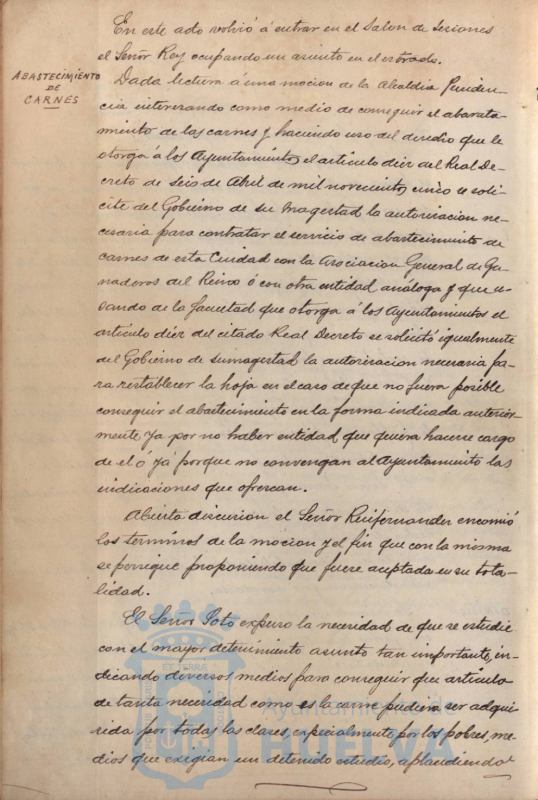 En este acto volvió á entrar en el Salon de Sesiones
el Señor Rey ocupando un asiento en el estrado.
ABASTECIMIENTO
DE
CARNES
Dada lectura á una mocion de la Alcaldia Presiden-
cia interesando como medio de conseguir el abarata-
miento de las carnes y haciendo uso del derecho que le
otorga á los Ayuntamientos el articulo diez del Real De-
creto de seis de Abril de mil novecientos cinco se soli-
cite del Gobierno de su Magestad la autorizacion ne-
cesaria para contratar el servicio de abastecimiento de
carnes de esta Ciudad con la Asociacion General de Ga-
naderos del Reino ó con otra entidad análoga y que u-
sando de la facultad que otorga á los Ayuntamientos el
articulo diez del citado Real Decreto se solicitó igualmente
del Gobierno de su magestad la autorizacion necesaria pa-
ra restablecer la hoja en el caso de que no fuera posible
conseguir el abastecimiento en la forma indicada anterior-
mente ya por no haber entidad que quiera hacerse cargo
de el ó yá porque no convengan al Ayuntamiento las
indicaciones que ofrezcan.
Abierta discusion el Señor Ruifernandez encomió
los terminos de la mocion y el fin que con la misma
se persigue proponiendo que fuere aceptada en su tota-
lidad.
El Señor Soto expuso la necesidad de que se estudie
con el mayor detenimiento asunto tan importante, in-
dicando diversos medios para conseguir que articulo
de tanta necesidad como es la carne pudiera ser adqui-
rida por todas las clases, especialmente por los pobres, me-
dios que exigian un detenido estudio, aplaudiendo
Ayuntamiento de
HUELVA